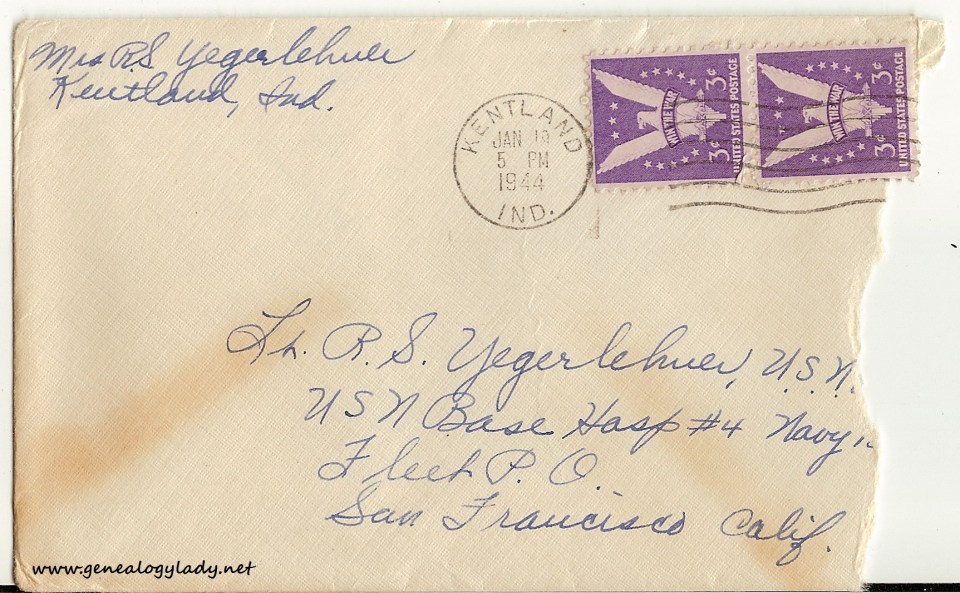 Mrs R.S. Yegerlehner
Kentland, Ind.
KENTLAND
JAN 19
5 PM
1944
IND.
WIN THE WAR
3¢ 3¢
UNITED STATES POSTAGE
WIN THE WAR
3¢ 3¢
UNITED STATES POSTAGE
Lt. R. S. Yegerlehner, U.S.N.
USN Base Hosp #4 Navy 1
Fleet P. O.
San Francisco Calif.
www.genealogylady.net